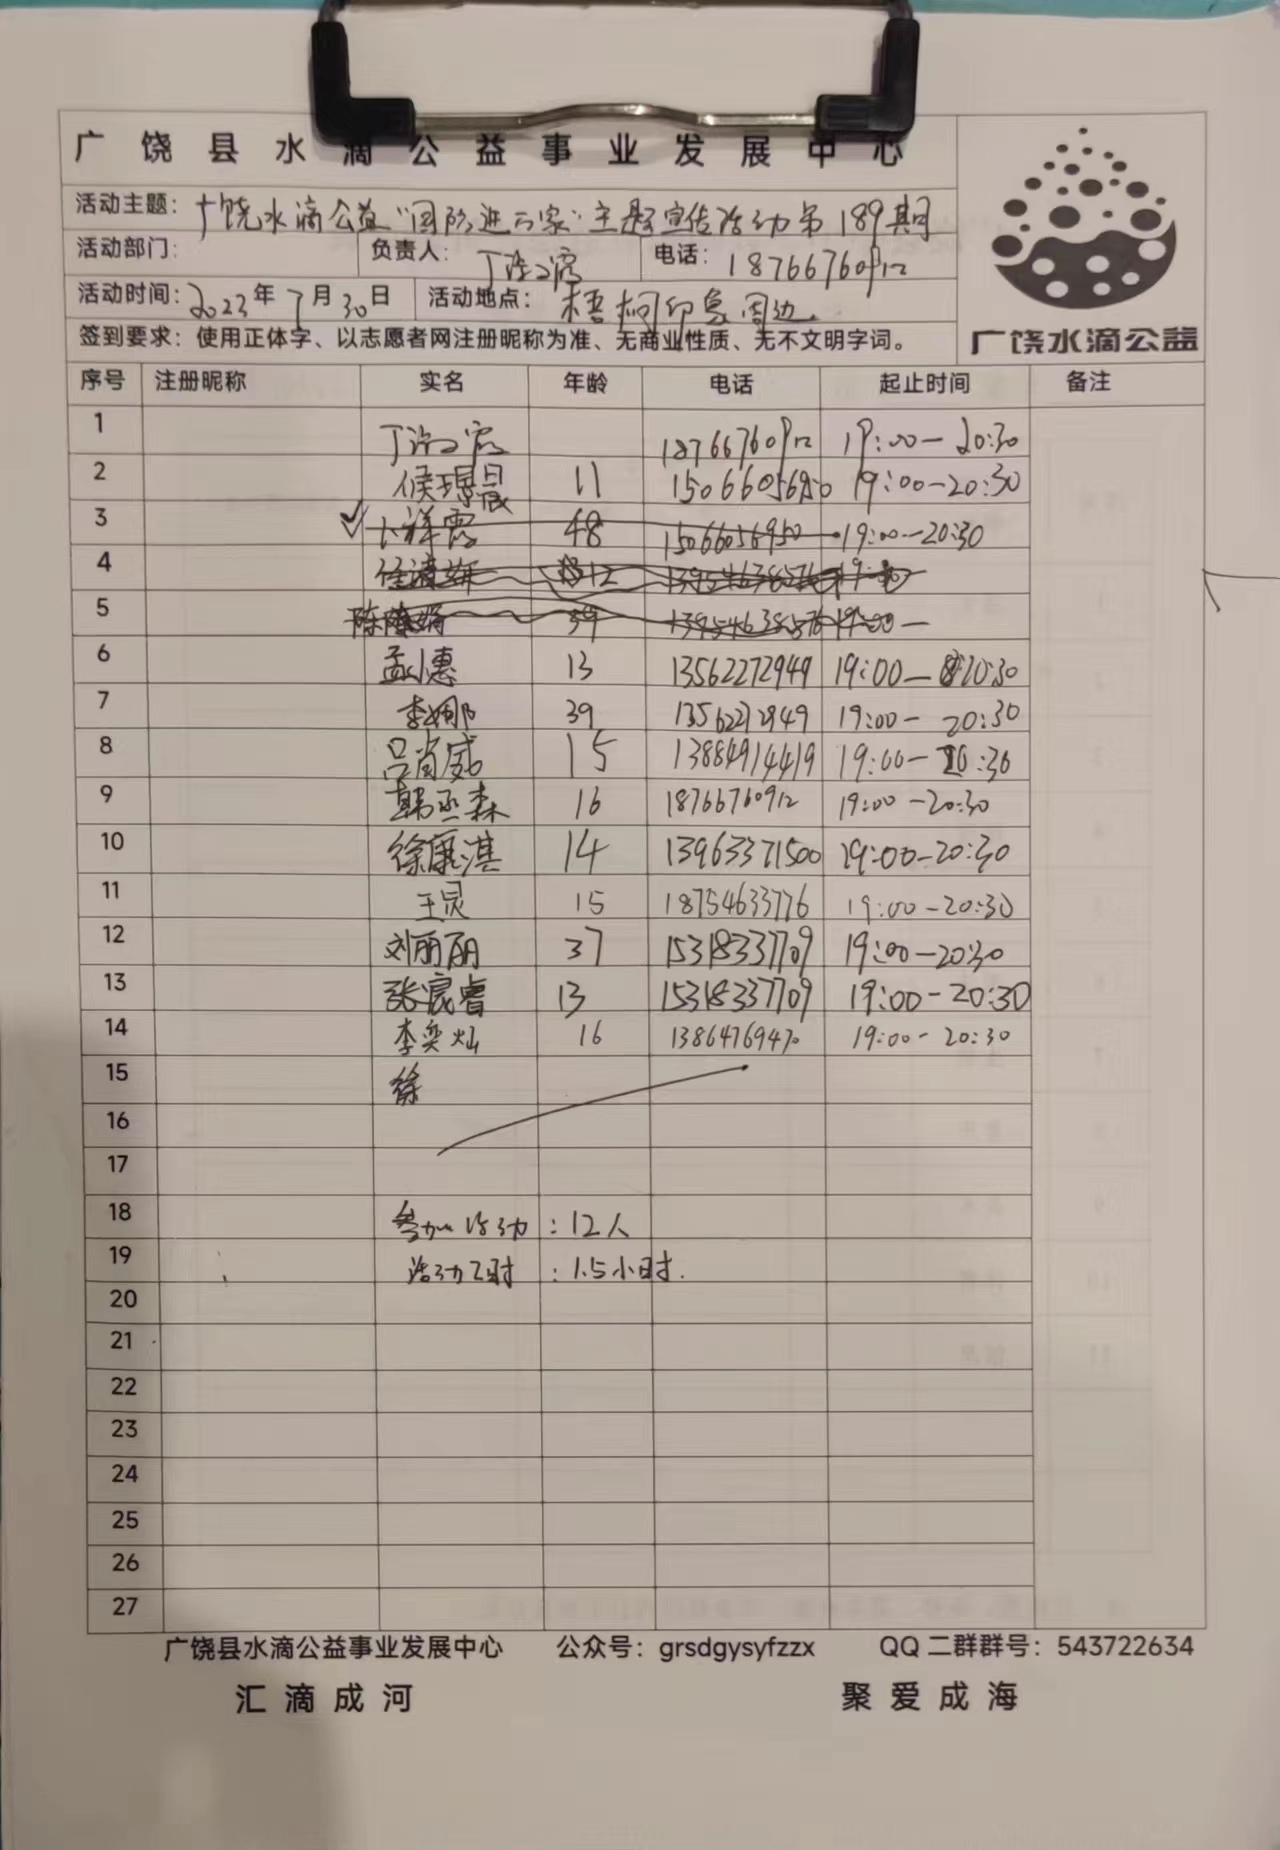 广饶县水滴公益事业发展中心
活动主题：广饶水滴公益"国防进万家"主题宣传活动第189期
活动部门： 负责人： 电话：18766760912
活动时间：2023年7月30日 活动地点：梧桐印象周边
签到要求：使用正体字、以志愿者网注册昵称为准、无商业性质、无不文明字词。
广饶水滴公益
序号 注册昵称 实名 年龄 电话 起止时间 备注
1 18766760912 19:00—20:30
2 侯璟晟 11 15066056950 19:00—20:30
3 48 15066056950 19:00—20:30
4 12 19:00
5 39 19:00—
6 孟小惠 13 13562272949 19:00—20:30
7 李娜 39 13562272949 19:00—20:30
8 吕尚威 15 13884914419 19:00—20:30
9 韩丞森 16 18766760912 19:00—20:30
10 徐康淇 14 13963371500 19:00—20:30
11 王灵 15 18754633776 19:00—20:30
12 刘丽丽 37 15318337709 19:00—20:30
13 张宸睿 13 15318337709 19:00—20:30
14 李奕灿 16 19:00—20:30
15 徐
16
17
18 参加活动：12人
19 活动工时：1.5小时.
20
21
22
23
24
25
26
27
广饶县水滴公益事业发展中心 公众号：grsdgysyfzzx QQ二群群号：543722634
汇滴成河 聚爱成海